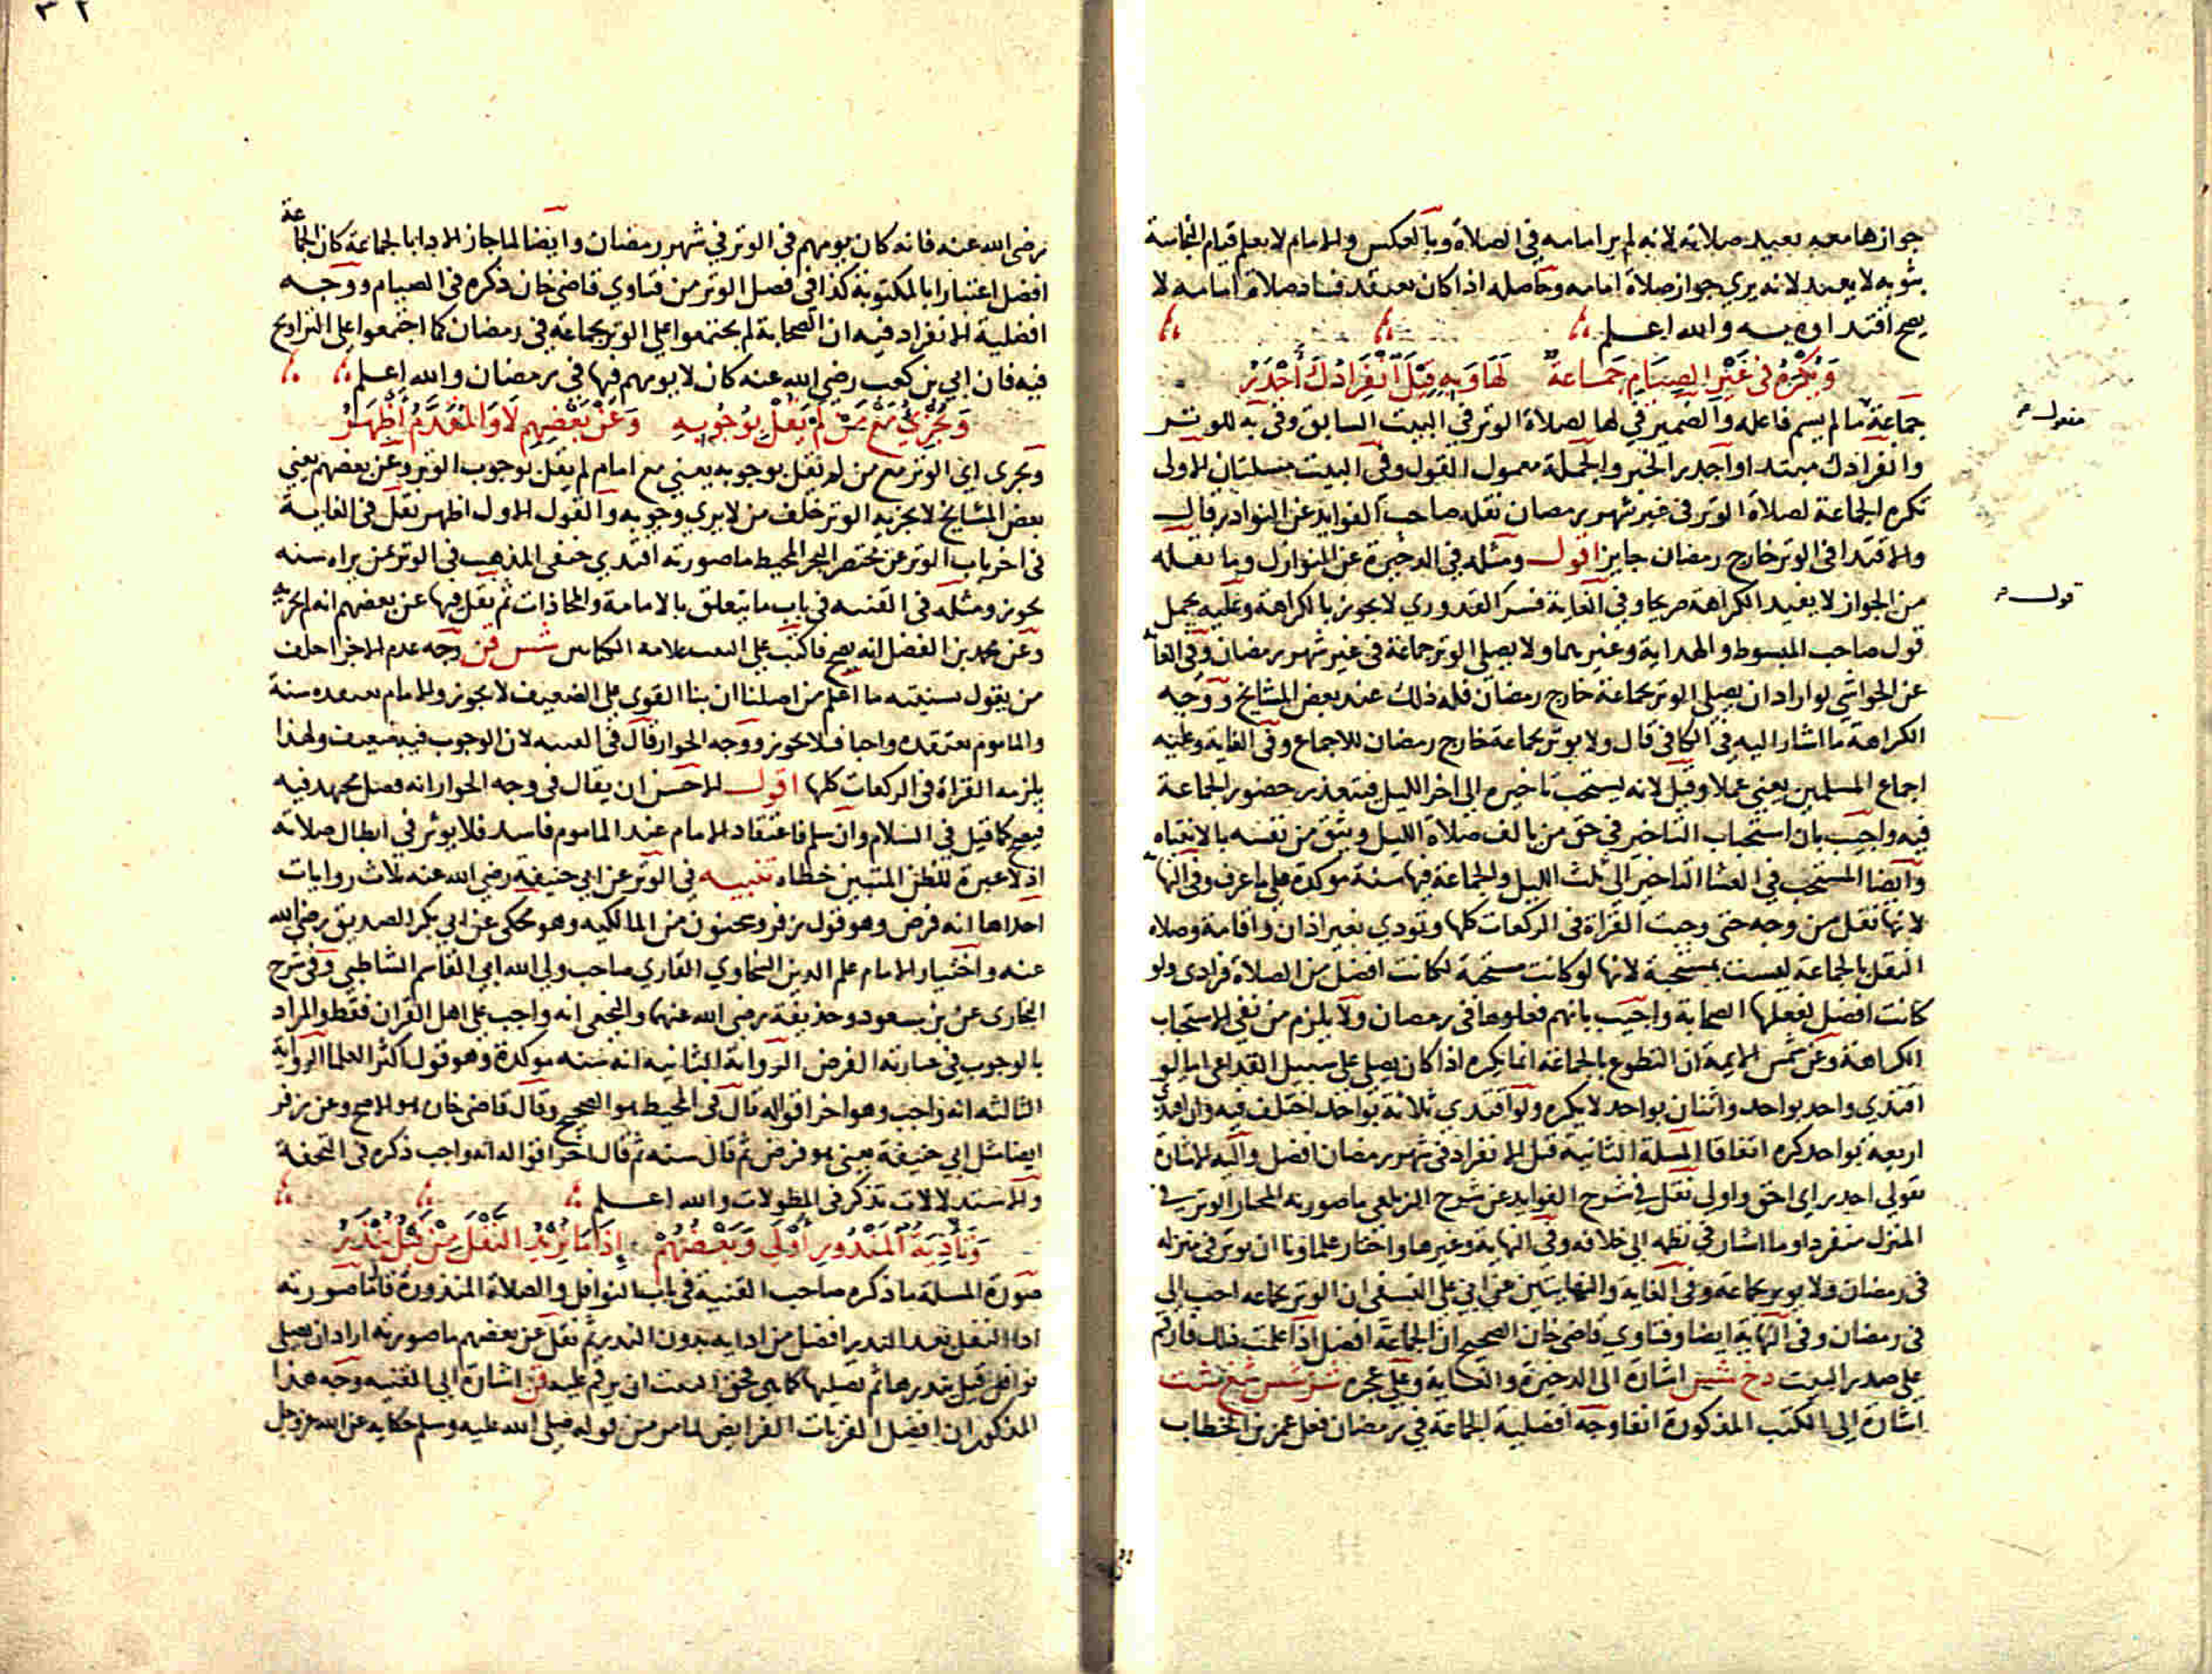 جوازها معه يعيد صلاته لانه لم ير امامه في الصلاة وبالعكس والامام لا يعلم قيام النجاسة
بثوبه لا يعيد لانه يري جواز صلاة امامه وحاصله اذا كان يعتقد فساد صلاة امامه لا
يصح اقتداوه به والله اعلم
وَيُكْرَهُ فى غَيْرِ الصِيَامِ جَمَاعَةٌ لَهَا وَبِهِ قِيلَ انْفِرَادُكَ أَجْدَرُ
جماعة ما لم يسم فاعله والضمير في لها لصلاة الوتر في البيت السابق وفى به للوتر
وانفرادك مبتدا واجدر الخبر والجملة معمول القول وفى البيت مسلتان الاولى
تكره الجماعة لصلاة الوتر فى غير شهر رمضان نقله صاحب الفوايد عن النوادر قال
والاقتدا فى الوتر خارج رمضان جايز اقول ومثله في الدخيرة عن النوازل وما نقله
من الجواز لا يفيد الكراهة صريحا وفي الغاية فسر القدوري لا يجوز بالكراهة وعليه يحمل
قول صاحب المبسوط والهداية وغيرهما ولا يصلي الوتر جماعة فى غير شهر رمضان وفي الغاية
عن الحواشي لو اراد ان يصلي الوتر بجماعة خارج رمضان فله ذلك عند بعض المشايخ ووجه
الكراهة ما اشار اليه في الكافي قال ولا يوتر بجماعة خارج رمضان للاجماع وفي الغاية وعليه
اجماع المسلمين يعني عملا وقيل لانه يستحب تاخيره الى اخر الليل فيتعذر حضور الجماعة
فيه واجيب بان استحباب التاخير في حق من يالف صلاة الليل ويثق من نفسه بالانتباه
وايضا المستحب في العشا التاخير الي ثلث الليل والجماعة فيها سنة موكدة علي ما عرف وفي النهاية
لانها نفل من وجه حتى وجبت القراة فى الركعات كلها وتودي بغير اذان واقامة وصلاة
النفل بالجماعة ليست بمستحبة لانها لو كانت مستحبة لكانت افضل من الصلاة فرادى ولو
كانت افضل لفعلها الصحابة واجيب بانهم فعلوها فى رمضان ولا يلزم من نفي الاستحباب
الكراهة وعن شمس الايمة ان التطوع بالجماعة انما يكره اذا كان يصلي على سبيل التداعي اما لو
اقتدي واحد بواحد واثنان بواحد لا يكره ولو اقتدي ثلاثة بواحد اختلف فيه وان اقتدى
اربعة بواحد كره اتفاقا المسلة الثانية قيل الانفراد فى شهر رمضان افضل واليه الاشارة
بقولى اجدر اي احق واولى نقل في شرح الفوايد عن شرح الزيلعي ما صورته المختار الوتر في
المنزل منفردا وما اشار في نظمه الى خلافه وفي النهاية وغيرها واختار علماونا ان يوتر فى منزله
فى رمضان ولا يوتر بجماعة وفى الغاية والنهايتين عن ابي علي النسفي ان الوتر بجماعه احب الى
فى رمضان وفى النهاية ايضا وفتاوي قاضى خان الصحيح ان الجماعة افضل اذا علمت ذلك فارقم
على صدر البيت دخ شس اشارة الى الدخيرة والغاية وعلي عجزه
اشارة الى الكتب المذكورة انفا وجه افضلية الجماعة في رمضان فعل عمر بن الخطاب
مفعول
قول
رضى الله عنه فانه كان يومهم فى الوتر في شهر رمضان وايضا لما جاز الادا بالجماعة كان الجماعة
افضل اعتبارا بالمكتوبة كذا فى فصل الوتر من فتاوي قاضي خان ذكره فى الصيام ووجه
افضلية الانفراد فيه ان الصحابة لم يجتمعوا علي الوتر بجماعة فى رمضان كما اجتمعوا على التراويح
فيه فان ابي بن كعب رضي الله عنه كان لا يومهم فيها فى رمضان والله اعلم
وَيُجْزِئُ مَعْ مَنْ لَمْ يَقُلْ بِوُجُوبِهِ وَعَنْ بَعْضِهِم لَا وَالمُقَدَّمُ أَظْهَرُ
ويجزى اي الوتر مع من لم يقل بوجوبه يعني مع امام لم يقل بوجوب الوتر وعن بعضهم يعني
بعض المشايخ لا يجزيه الوتر خلف من لا يري وجوبه والقول الاول اظهر نقل فى الغاية
فى اخر باب الوتر عن مختصر البحر المحيط ما صورته اقتدي حنفى المذهب فى الوتر بمن يراه سنه
يجوز ومثله فى القنيه فى باب ما يتعلق بالامامة والمحاذات ثم نقل فيها عن بعضهم انه لم يجزيه
وعن محمد بن الفضل انه يصح فاكتب على البيت علامة الكتابين شس قن وجه عدم الاجزا خلف
من يقول بسنيته ما اعلم من اصلنا ان بنا القوى على الضعيف لا يجوز والامام يعتقده سنة
والماموم يعتقده واجبا فلا يجوز ووجه الجواز قال فى القنيه لان الوجوب فيه ضعيف ولهذا
يلزمه القراة فى الركعات كلها اقول الاحسن ان يقال فى وجه الجواز انه فصل مجتهد فيه
فيصح كما قيل في السلام وان سلم فاعتقاد الامام عند الماموم فاسد فلا يوثر في ابطال صلاته
اذ لا عبرة للظن المتبين خطاه تنبيه في الوتر عن ابي حنيفة رضي الله عنه ثلاث روايات
احداها انه فرض وهو قول زفر وسحنون من المالكيه وهو محكى عن ابي بكر الصديق رضى الله
عنه واختيار الامام علم الدين السخاوي القاري صاحب ولى الله ابي القاسم الشاطبي وفى شرح
البخارى عن بن مسعود وحذيفة رضي الله عنهما والنخعى انه واجب على اهل القران فقط والمراد
بالوجوب في عبارته الفرض الرواية الثانيه انه سنه موكدة وهو قول اكثر العلما الرواية
الثالثه انه واجب وهو اخر اقواله قال فى المحيط هو الصحيح وقال قاضى خان هو الاصح وعن زفر
ايضا مثل ابي حنيفة يعنى هو فرض ثم قال سنه ثم قال اخر اقواله انه واجب ذكره فى التحفة
والاستدلالات تذكر فى المطولات والله اعلم
وَتَأدِيَةُ المَنْذُورِ أَوْلَى وَبَعْضُهُمْ إِذَا مَا يُرِيْدُ النَفْلَ مِنْ قَبْلُ يَنْذِرُ
صورة المسلة ما ذكره صاحب القنية فى باب النوافل والصلاة المنذورة قال ما صورته
ادا النفل بعد النذر افضل من ادايه بدون النذر ثم نقل عن بعضهم ما صورته اراد ان يصلي
نوافل قيل ينذرها ثم يصليها كما هى فحق البيت ان يرقم عليه قن اشارة الى القنيه وجه هذا
المذكور ان افضل القربات الفرايض لما مر من قوله صلى الله عليه وسلم حكاية عن الله عز وجل